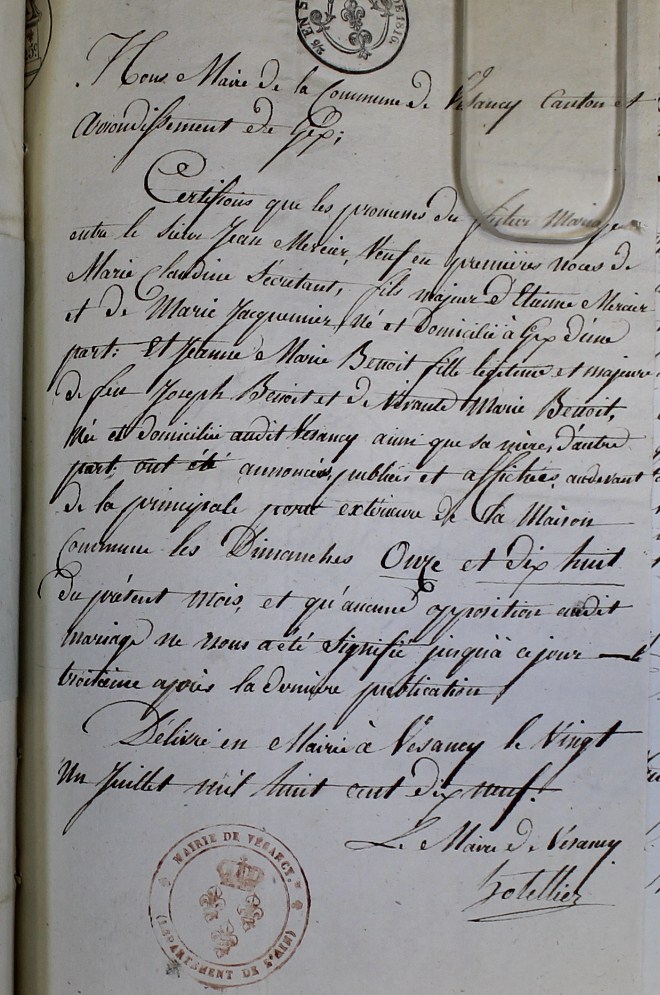 DE 1816.
Nous Maire de la Commune de Vésancy Canton et
Arrondissement de Gex;
Certifions que les promesses du futur Mariage
entre le Sieur Jean Mercier, Veuf en premières noces de
Marie Claudine Sécretant, fils majeur d'Etienne Mercier
et de Marie Jacquemier, Né et Domicilié à Gex d'une
part: Et Jeanne Marie Benoit fille legitime et majeure
de feu Joseph Benoit et de Vivante Marie Benoit,
Née et domiciliée audit Vésancy ainsi que sa mère, d'autre
part, ont été annoncées, publiées et affichées, au devant
de la principale porte extérieure de la Maison
Commune les Dimanches Onze et dix huit
du présent mois, et qu'aucune opposition audit
mariage ne nous a été signifié jusqu'à ce jour le
troisième après la dernière publication;
Délivré en Mairie à Vésancy le Vingt
Un Juillet mil huit cent dix neuf.
Le Maire de Vésancy
MAIRIE DE VÉSANCY.
(DÉPARTEMENT DE L'AIN)